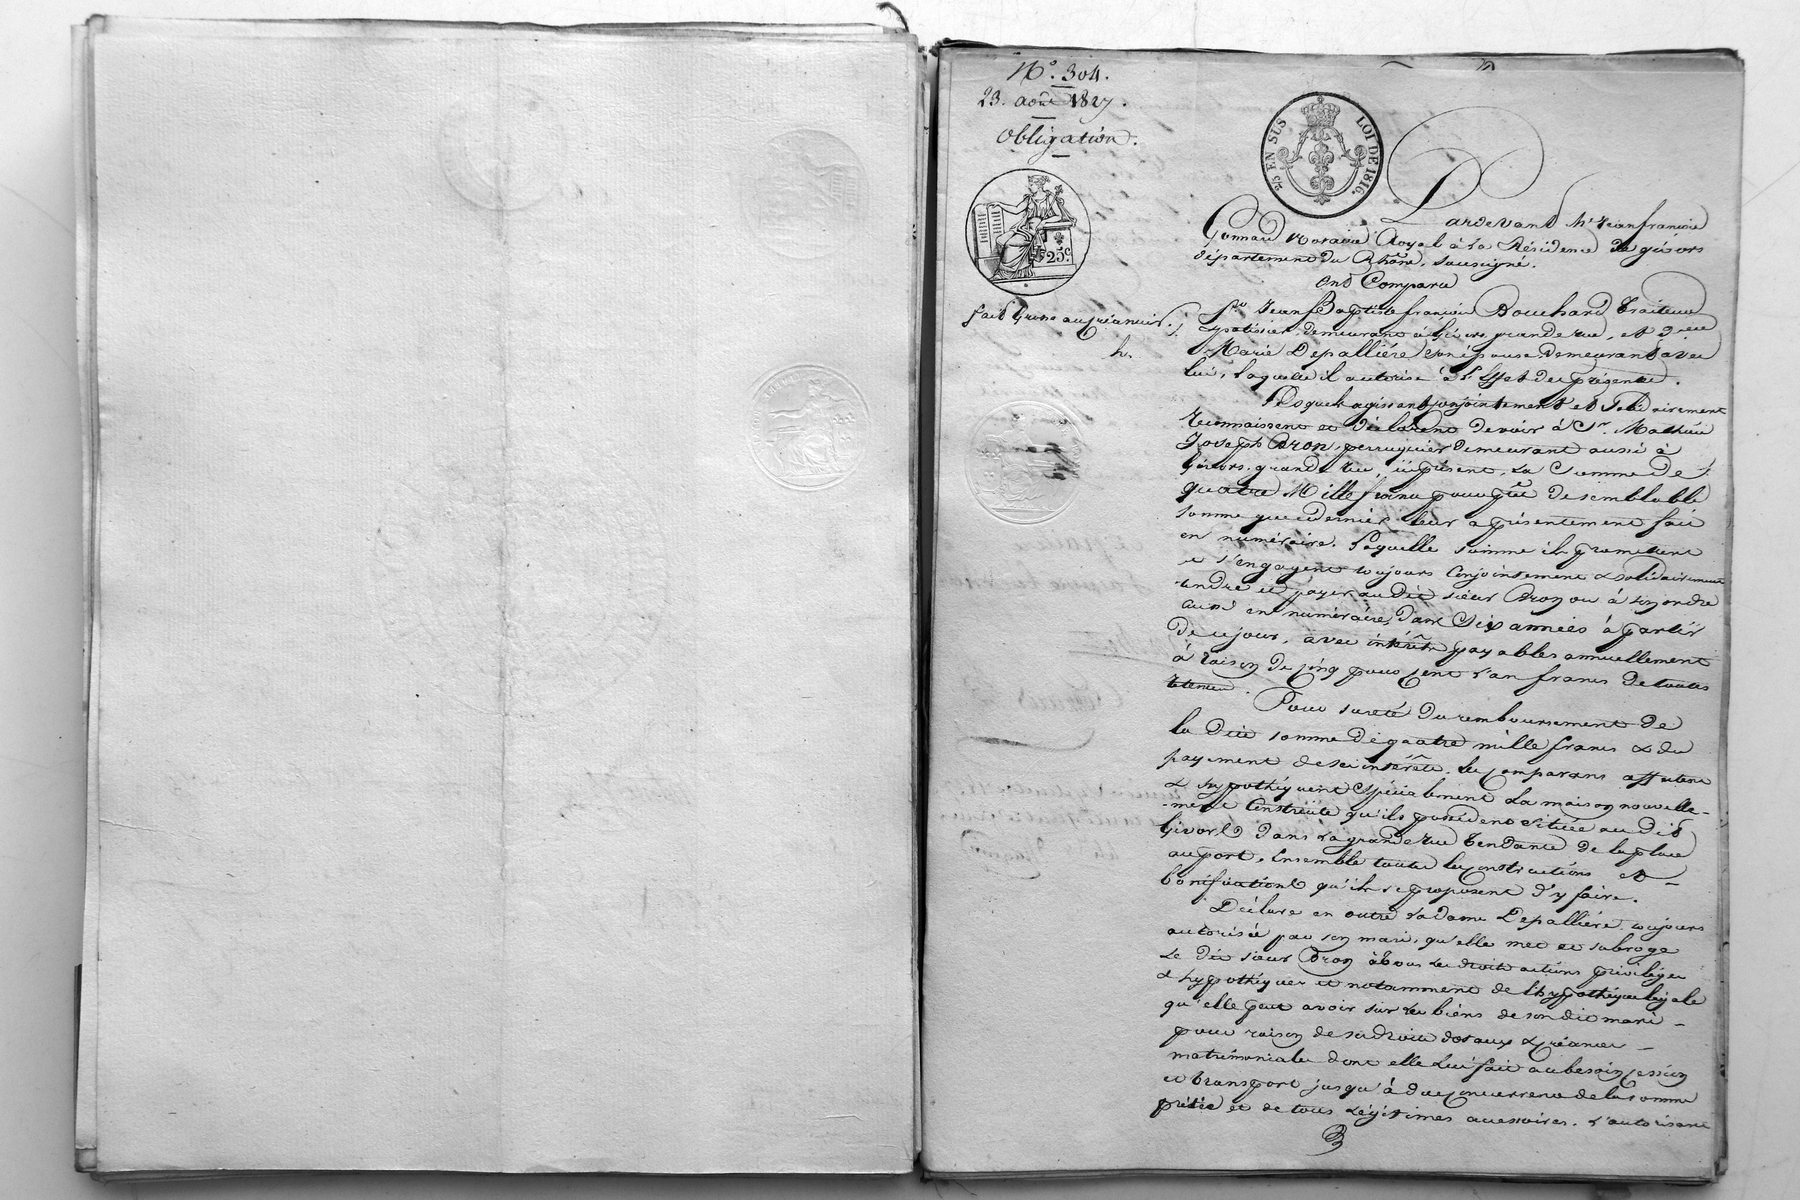 N.° 304.
23. août 1827.
Obligation.
25 EN SUS LOI DE 1816.
25.c
fait grosse au créancier.
Pardevant Me Jean françois
Gonnard Notaire Royal à la Résidence de givors
département du Rhône, soussigné.
Ont Comparu
Sr Jean Baptiste françois Bouchard traiteur
& patissier demeurant à Givors, grande rue, et
Marie Depallière son épouse demeurant avec
lui, laquelle il autorise à l'effet des présentes.
Lesquels agissant conjointement et solidairement
Reconnaissent et déclarent devoir à Sr. Mathieu
Joseph Dron, perruquier demeurant aussi à
Givors, grande rue, ici présent, la Somme de
quatre Mille francs pour prêt de semblable
somme que ce dernier leur a présentement fait
en numéraire. Laquelle somme ils promettent
et s'engagent toujours conjointement & solidairement
rendre et payer au dit sieur Dron ou à son ordre
aussi en numéraire, dans Six années à partir
de ce jour, avec intérêts payables annuellement
à raison de cinq pour cent l'an francs de toutes
retenues.
Pour sureté du remboursement de
la dite somme de quatre mille francs & du
payement des intérêts, les comparans affectent
& hypothéquent Spécialement la maison nouvelle-
-ment Construite qu'ils possèdent située au dit
Givors dans la grande rue tendante de la place
au port, Ensemble toutes les constructions et
bonifications qu'ils se proposent d'y faire.
Déclare en outre la dame Depallière, toujours
autorisée par son mari, qu'elle met et subroge
le dit sieur Dron à tous les droits actions privilèges
& hypothéques et notamment de l'hypothéque légale
qu'elle peut avoir sur les biens de son dit mari -
pour raison de ses droits dotaux & créances -
matrimoniales dont elle lui fait au besoin cession
et transport jusqu'à due concurrence de la somme
prêtée et de tous légitimes accessoires. L'autorisant